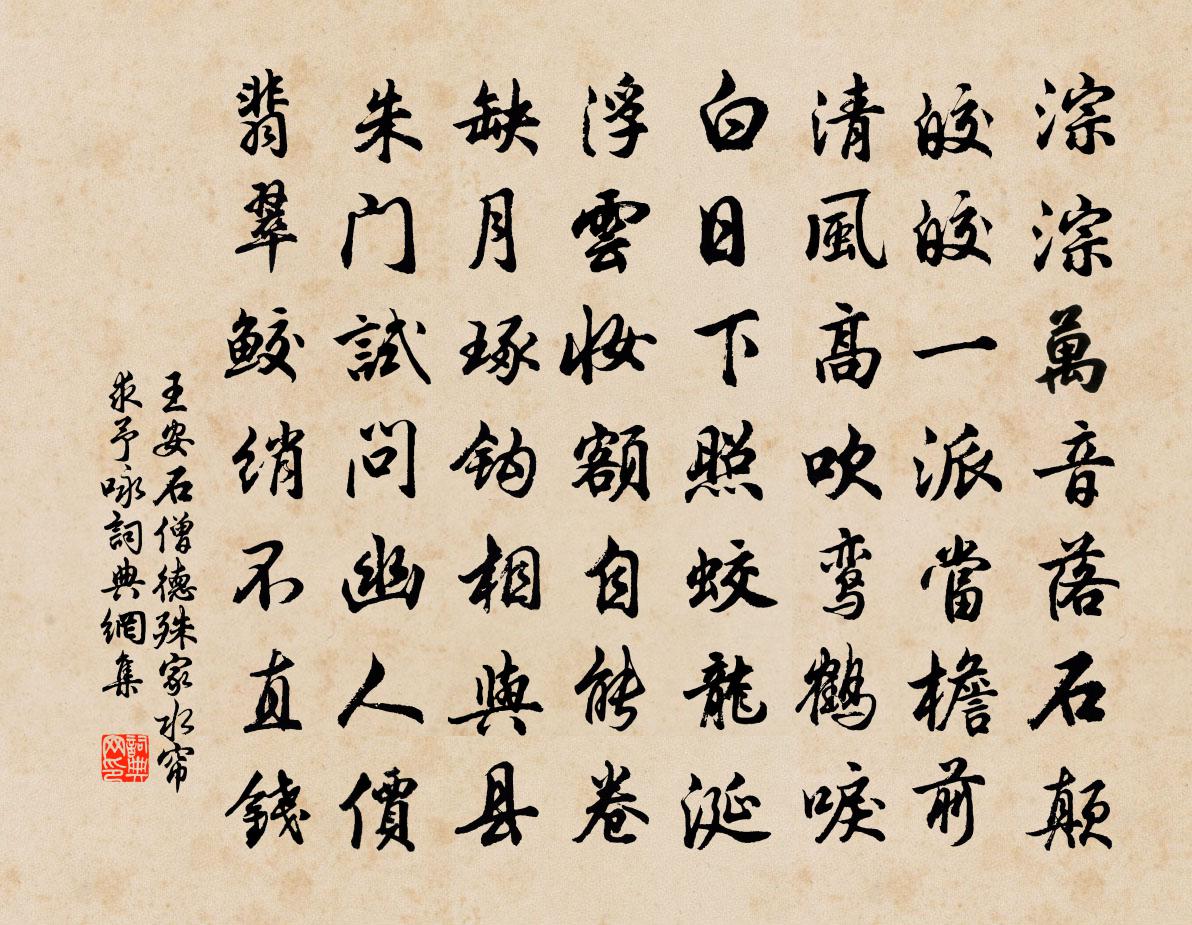 淙淙萬音落石顛
皎皎一派當檐前
清風高吹鸾鶴唳
白日下照蛟龍涎
浮雲妆額自能卷
缺月琢鈎相與县
朱门試问幽人價
翡翠鲛绡不直錢
王安石僧德殊家水帘
求予咏詞典網集
詞典
网印